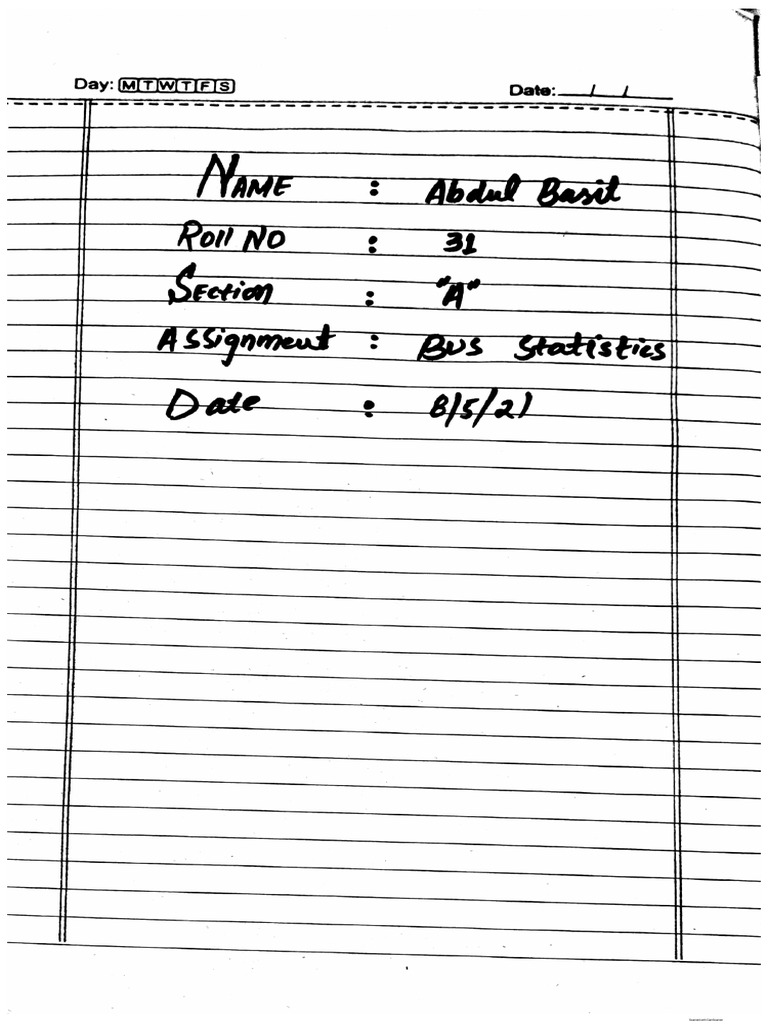 Day: M T W T F S Date: / /
NAME : Abdul Basit
Roll NO : 31
Section : "A"
Assignment : BUS Statistics
Date : 8/5/21